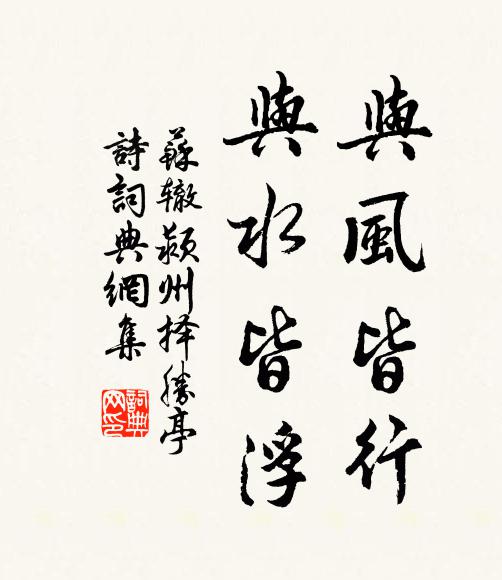 與風皆行
與水皆浮
蘇辙颍州择勝亭
詩詞典網集
詞典网印